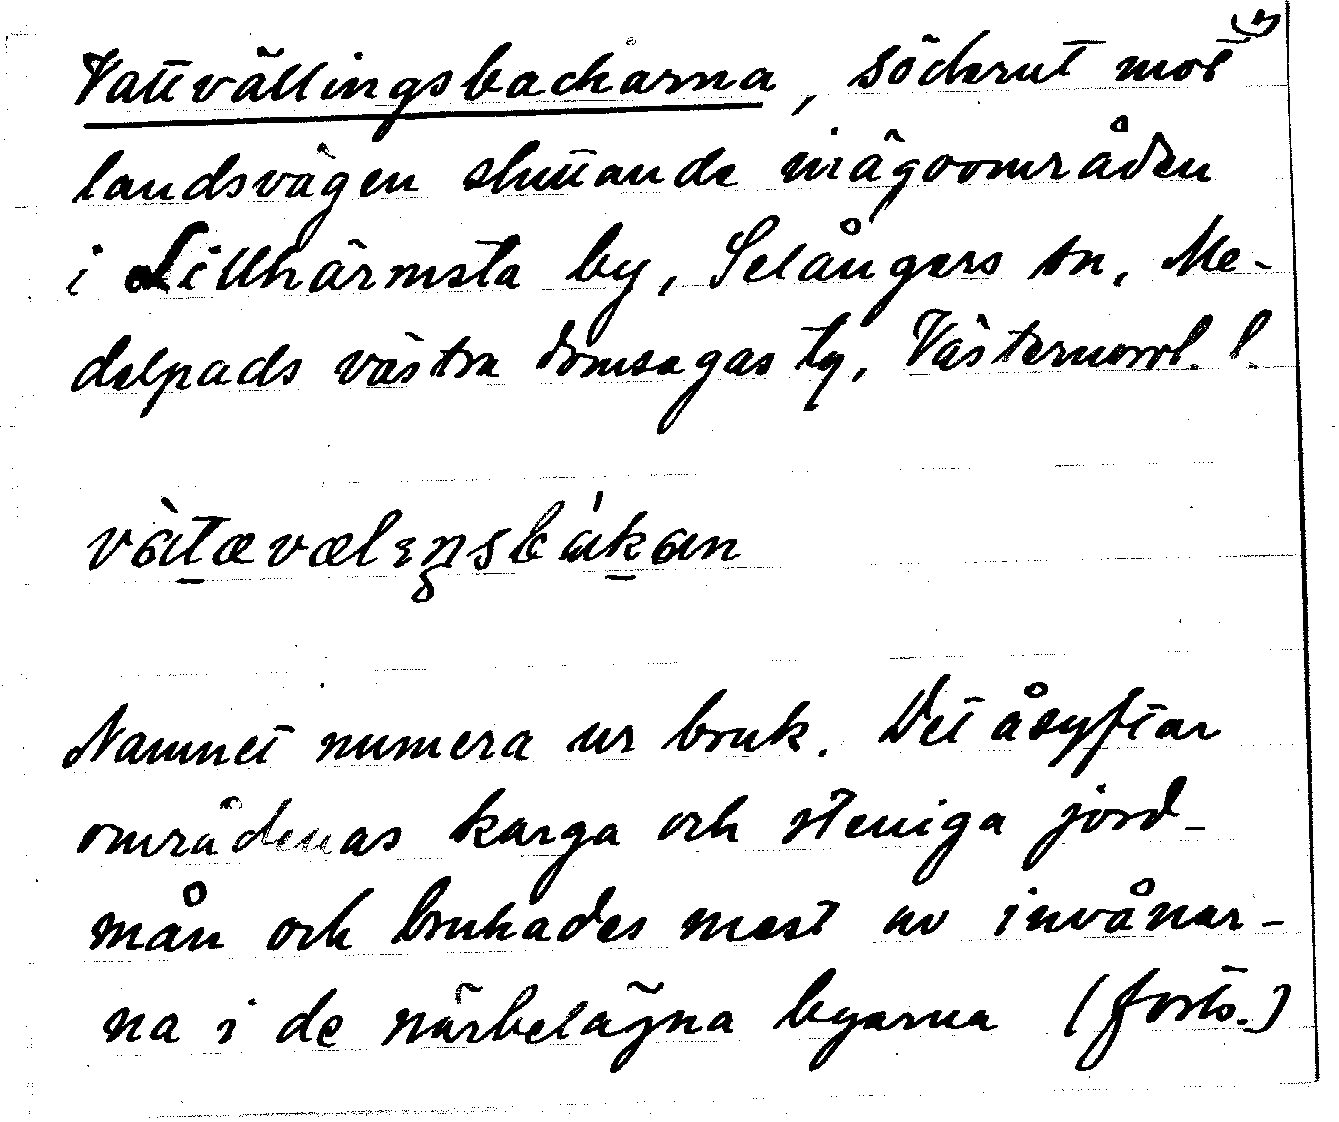 Vattvällingsbackarna, söderut mot
landsvägen sluttande inägoområden
i Lillhärmsta by, Selångers sn, Me-
delpads västra domsagas tg, Västernorrl. l.
vàtavælıŋsbákan
Namnet numera ur bruk. Det åsyftar
områdenas karga och steniga jord-
mån och brukades mest av invånar-
na i de närbelägna byarna (forts.)